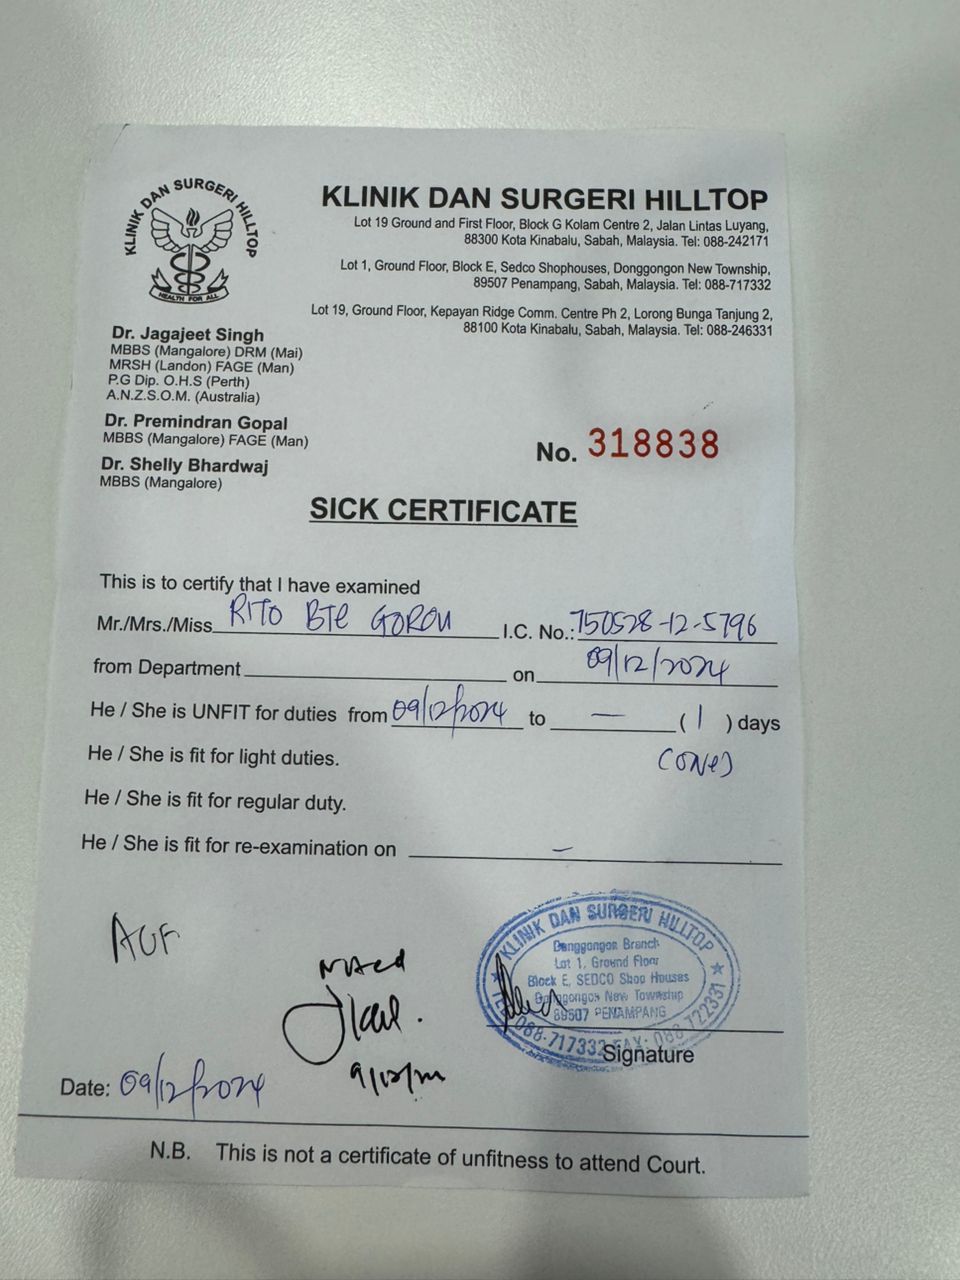 KLINIK DAN SURGERI HILLTOP
HEALTH FOR ALL
KLINIK DAN SURGERI HILLTOP
Lot 19 Ground and First Floor, Block G Kolam Centre 2, Jalan Lintas Luyang,
88300 Kota Kinabalu, Sabah, Malaysia. Tel: 088-242171
Lot 1, Ground Floor, Block E, Sedco Shophouses, Donggongon New Township,
89507 Penampang, Sabah, Malaysia. Tel: 088-717332
Lot 19, Ground Floor, Kepayan Ridge Comm. Centre Ph 2, Lorong Bunga Tanjung 2,
88100 Kota Kinabalu, Sabah, Malaysia. Tel: 088-246331
Dr. Jagajeet Singh
MBBS (Mangalore) DRM (Mai)
MRSH (Landon) FAGE (Man)
P.G Dip. O.H.S (Perth)
A.N.Z.S.O.M. (Australia)
Dr. Premindran Gopal
MBBS (Mangalore) FAGE (Man)
Dr. Shelly Bhardwaj
MBBS (Mangalore)
No. 318838
SICK CERTIFICATE
This is to certify that I have examined
Mr./Mrs./Miss RITO BTE GOROU I.C. No.: 750528-12-5796
from Department on 09/12/2024
He / She is UNFIT for duties from 09/12/2024 to — ( 1 ) days
(ONE)
He / She is fit for light duties.
He / She is fit for regular duty.
He / She is fit for re-examination on —
KLINIK DAN SURGERI HILLTOP
Donggongon Branch
Lot 1, Ground Floor
Block E, SEDCO Shop Houses
Donggongon New Township
89507 PENAMPANG
TEL: 088-717332 FAX: 088-722331
Signature
Date: 09/12/2024
N.B. This is not a certificate of unfitness to attend Court.